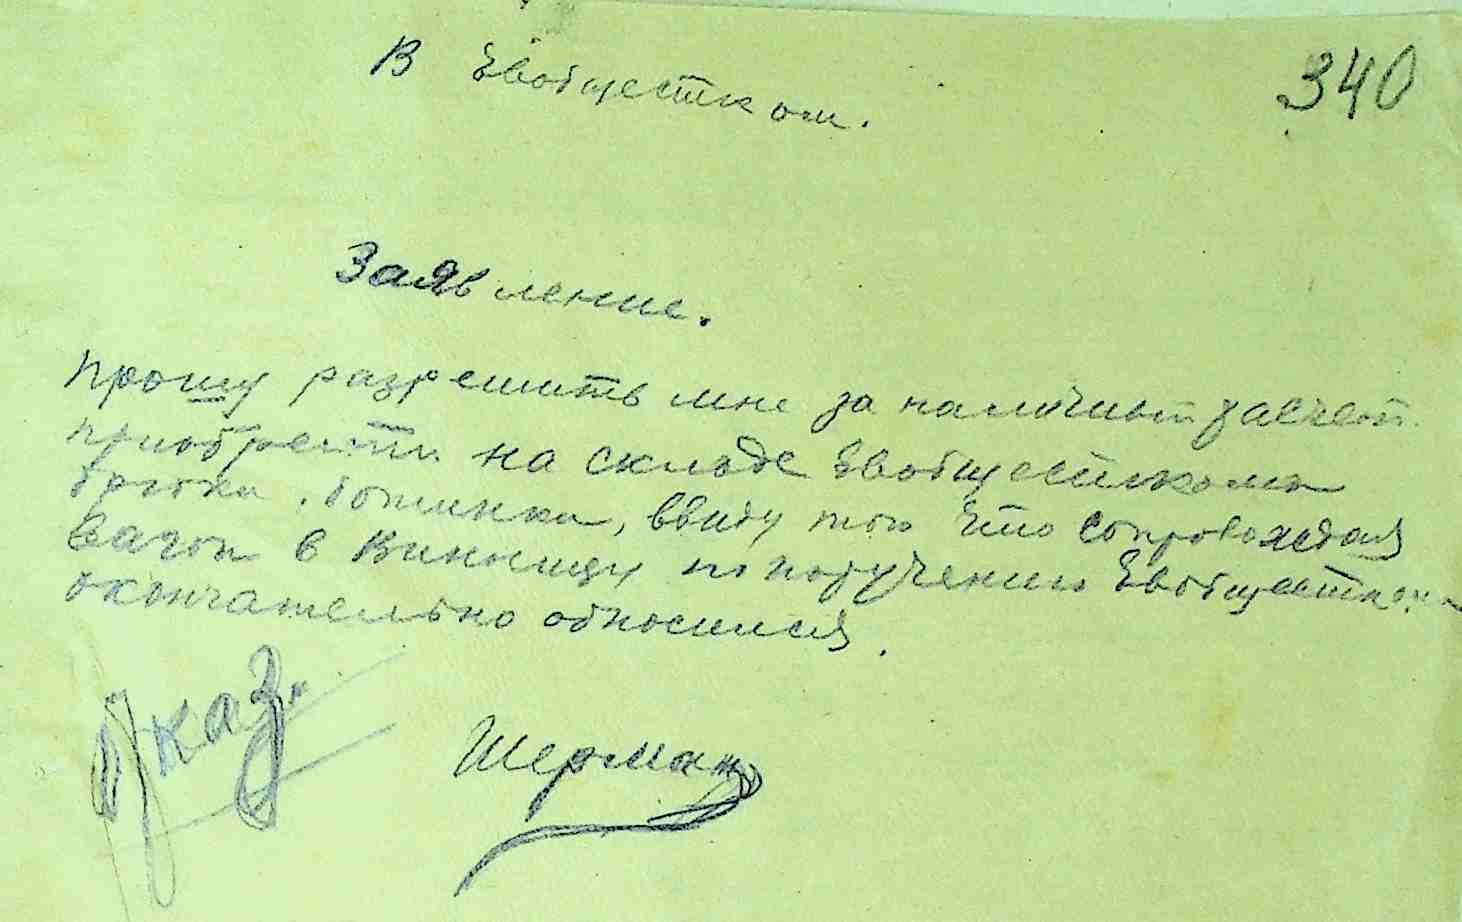 В Евобщестком.
340
Заявление.
Прошу разрешить мне за наличный расчет
приобрести на складе Евобщесткома
брюки, ботинки, ввиду того что сопровождая
вагон в Винницу по поручению Евобщесткома
окончательно обносился.
Отказ.
Шерман